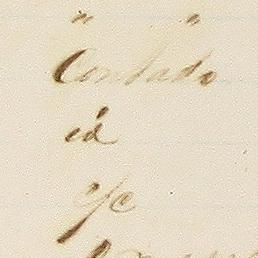 " "
Contado
id
c/c